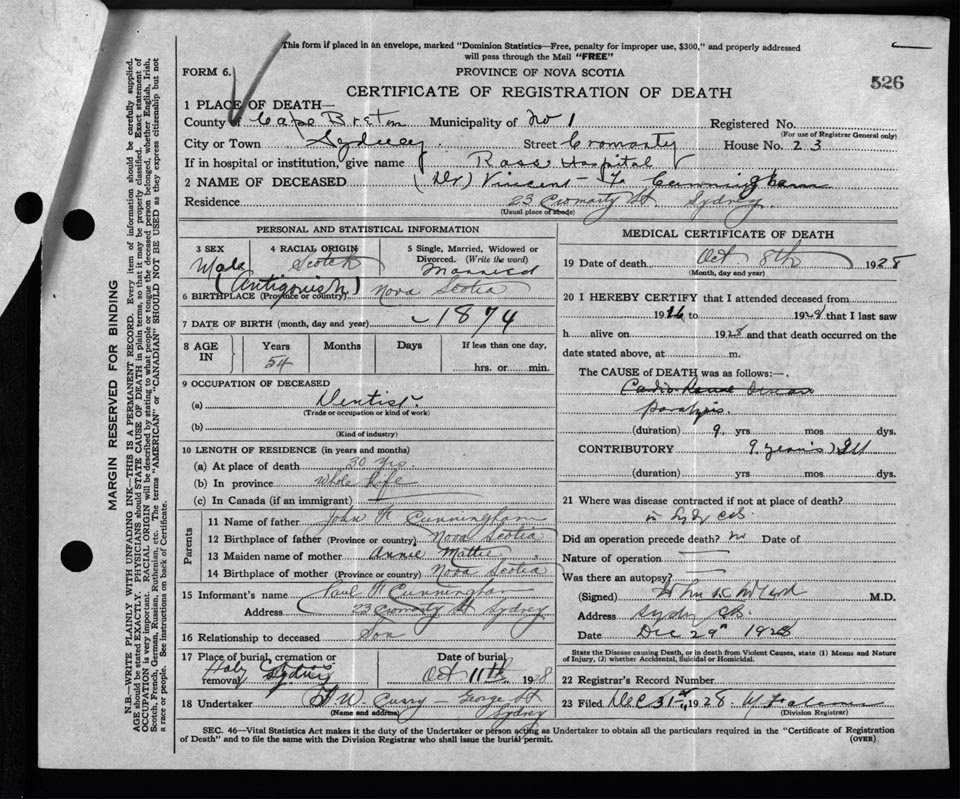 This form if placed in an envelope, marked "Dominion Statistics—Free, penalty for improper use, $300," and properly addressed
will pass through the Mail "FREE"
FORM 6.
PROVINCE OF NOVA SCOTIA
526
CERTIFICATE OF REGISTRATION OF DEATH
1 PLACE OF DEATH—
County of Cape Breton Municipality of No 1 Registered No.
(For use of Registrar General only)
City or Town Sydney Street Cromarty House No. 23
If in hospital or institution, give name Ross Hospital
2 NAME OF DECEASED (Dr) Vincent Cunningham
Residence 23 Cromarty St. Sydney
(Usual place of abode)
PERSONAL AND STATISTICAL INFORMATION
3 SEX 4 RACIAL ORIGIN 5 Single, Married, Widowed or
Divorced. (Write the word)
Male Scotch Married
(Antigonish)
6 BIRTHPLACE (Province or country) Nova Scotia
7 DATE OF BIRTH (month, day and year) 1874
8 AGE IN Years Months Days If less than one day,
54 hrs. or min.
9 OCCUPATION OF DECEASED
(a) Dentist.
(Trade or occupation or kind of work)
(b)
(Kind of industry)
10 LENGTH OF RESIDENCE (in years and months)
(a) At place of death 30 yrs.
(b) In province Whole Life
(c) In Canada (if an immigrant)
Parents
11 Name of father John Cunningham
12 Birthplace of father (Province or country) Nova Scotia
13 Maiden name of mother Annie
14 Birthplace of mother (Province or country) Nova Scotia
15 Informant's name Paul Cunningham
Address 23 Cromarty St Sydney
16 Relationship to deceased Son
17 Place of burial, cremation or Date of burial
removal Sydney Oct 11th 1928
18 Undertaker Curry — George St
(Name and address) Sydney
MEDICAL CERTIFICATE OF DEATH
19 Date of death Oct 8th 1928
(Month, day and year)
20 I HEREBY CERTIFY that I attended deceased from
19 to 1928 that I last saw
h alive on 1928 and that death occurred on the
date stated above, at m.
The CAUSE of DEATH was as follows:—
paralysis.
(duration) 9 yrs mos dys.
CONTRIBUTORY 9 years
(duration) yrs mos dys.
21 Where was disease contracted if not at place of death?
Did an operation precede death? no Date of
Nature of operation
Was there an autopsy?
(Signed) M.D.
Address Sydney CB
Date Dec 29th 1928
State the Disease causing Death, or in death from Violent Causes, state (1) Means and
Nature of Injury, (2) whether Accidental, Suicidal or Homicidal.
22 Registrar's Record Number
23 Filed Dec 31st 1928
(Division Registrar)
SEC. 46—Vital Statistics Act makes it the duty of the Undertaker or person acting as Undertaker to obtain all the particulars required in the "Certificate of Registration
of Death" and to file the same with the Division Registrar who shall issue the burial permit. (OVER)
MARGIN RESERVED FOR BINDING
N.B.—WRITE PLAINLY WITH UNFADING INK—THIS IS A PERMANENT RECORD. Every item of information should be carefully supplied.
AGE should be stated EXACTLY. PHYSICIANS should STATE CAUSE OF DEATH in plain terms, so that it may be properly classified. Exact statement of
OCCUPATION is very important. RACIAL ORIGIN will be described by stating to what people or tongue the deceased person belonged, whether English, Irish,
Scotch, French, German, Russian, Ruthenian, etc. The terms "AMERICAN" or "CANADIAN" SHOULD NOT BE USED as they express citizenship but not
a race or people. See instructions on back of Certificate.